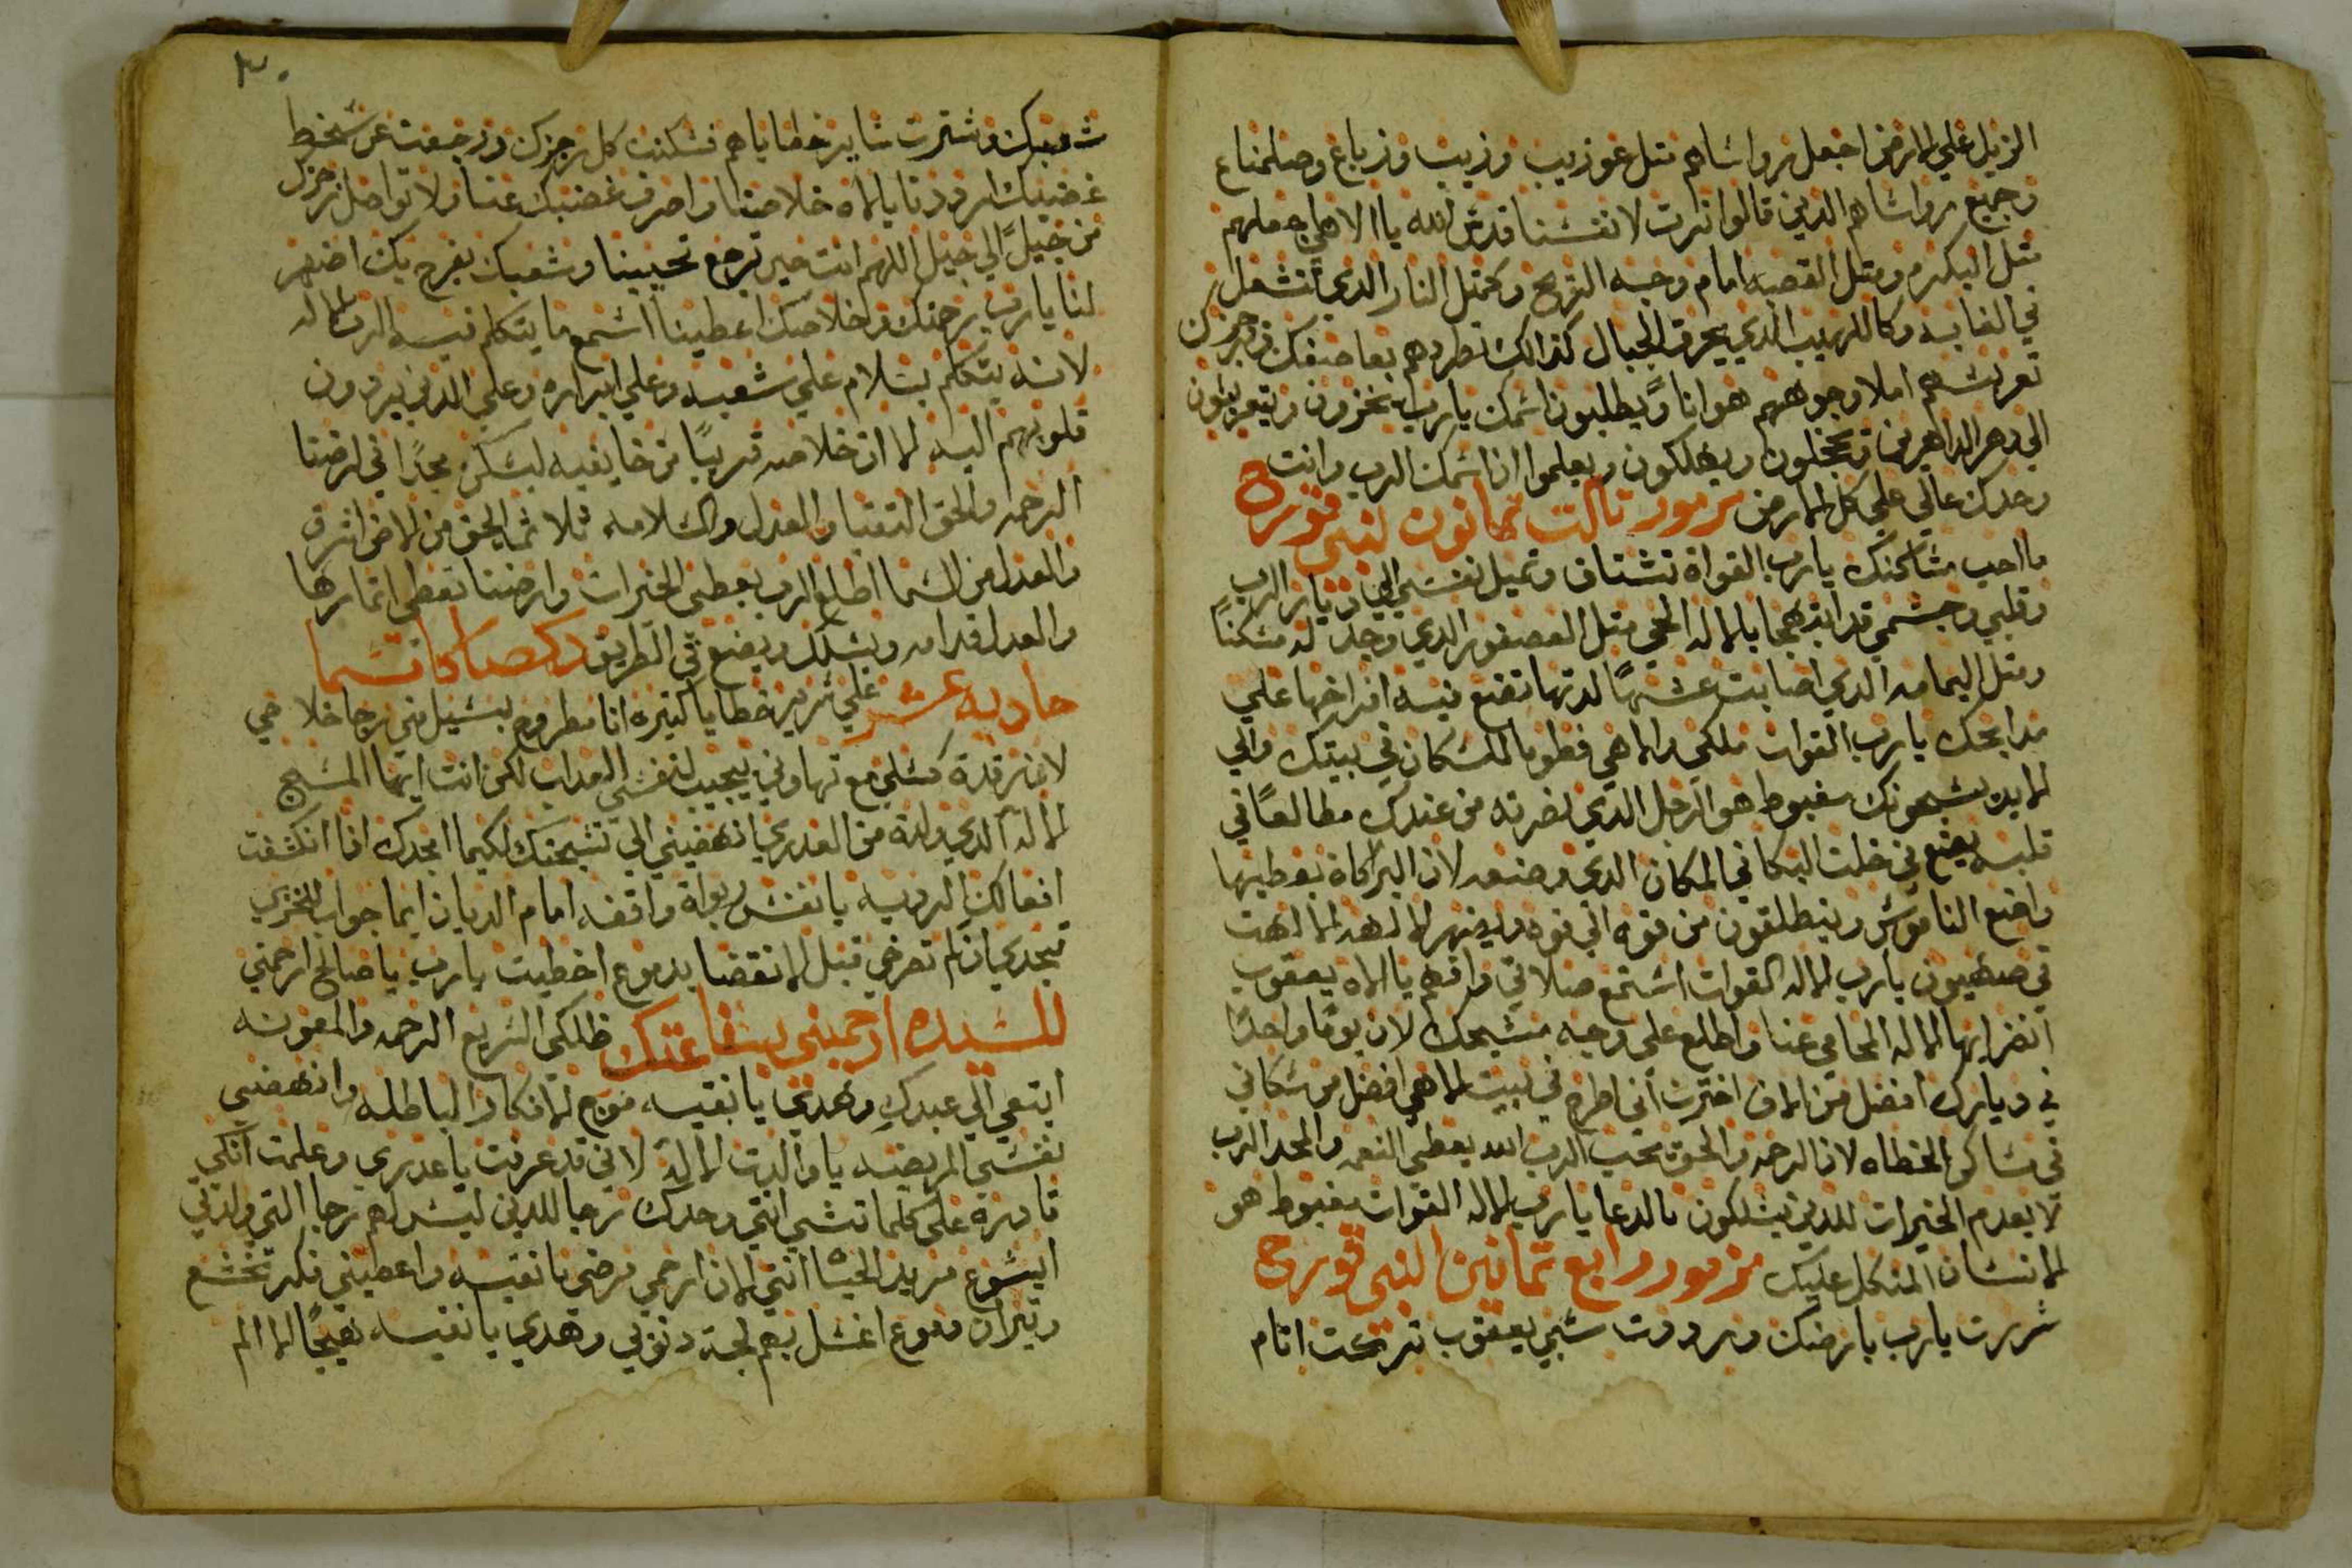 الزبل علي الارض اجعل رواساهم متل عوزيب وزيب وزباع وصلمناع
وجميع رواساهم الدين قالوا نرت لانفسنا قدس الله يا الاهي اجعلهم
متل البكره ومتل القصبه امام وجه الريح وكمتل النار الدي تشعل
في الغابه وكاللهيب الدي يحرق الجبال كدالك تطردهم بعاصفك وبرجزك
تعربسهم املا وجوههم هوانا ويطلبون اسمك يارب يخزون ويتعربلون
الي دهر الداهرين ويخجلون ويهلكون ويعلموا ان اسمك الرب وانت
وحدك عالي علي كل الارض مزمور تالت تمانون لبني قورح
ما احب مساكنك يارب القواة تشتاق وتميل نفسي الي ديار الرب
وقلبي وجسمي قد ابتهجا بالاله الحي متل العصفور الدي وجد له مسكناً
ومتل اليمامه الدي اصابت عشهاً لدتها تضع فيه افراخها علي
مدابحك يارب القوات ملكي والاهي فطوبا للسكان في بيتك والي
الابد يسبحونك مغبوط هو الرجل الدي نضرته من عندك مطالعاً في
قلبه يضع في خلت البكا في المكان الدي وضعه لان البركاة يعطيها
واضع الناموس وينطلقون من قوه الي قوه ويضهر الاه الالهت
في صهيون يارب الاله القوات استمع صلاتي وافهم يا الاه يعقوب
انضر ايها الاله المحامي عنا واطلع علي وجه مسيحك لان يوماً واحداً
في ديارك افضل من الاف اخترت اني اطرح في بيت الاهي افضل من سكاني
في مساكن الخطاه لان الرحمه والحق يحب الرب الله يعطي النعمه والمجد الرب
لا يعدم الخيرات للدين يسلكون بالدعا يارب الاله القوات مغبوط هو
الانسان المتكل عليك مزمور رابع تمانين لبني قورح
سررت يارب بارضك ورددت سبي يعقوب تركت اتام
٣٠
شعبك وسترت ساير خطاياهم فسكنت كل رجزك ورجعت عن سخط
غضبك ارددنا يا الاه خلاصنا واصرف غضبك عنا ولا تواصل رجزك
من جيل الي جيل اللهم انت حين ترجع تحيينا وشعبك يفرح بك اضهر
لنا يارب رحمتك وخلاصك اعطينا اسمع ما يتكلم فيه الرب الاله
لانه يتكلم بسلام علي شعبه وعلي ابراره وعلي الدين يردون
قلوبهم اليه لما ان خلاصه قريباً من خايفيه ليسكن مجداً في ارضنا
الرحمه والحق التقيا والعدل والسلامه تلاتما الحق من الارض اشرق
والعدل من السما اطلع الرب يعطي الخيرات وارضنا تعطي اتمارها
والعدل قدامه ويسلك ويضع في الطريق دكصا كاتسما
حاديه عشر علي سرير خطايا كتيره انا مطروح بتسيل مني رجا خلاصي
لان رقدة كسلي مع تهاوني يجيب لنفسي العداب لكن انت ايها المسيح
الاله الدي ولدة من العدري انهضيني الي تسبحتك لكيما امجدك اذا انكشفت
افعالك الرديه يا نفس ربواة واقفه امام الديان ايما جواب للخزي
تجدي ان لم تعرفي قبل الانقضا بدموع اخطيت يارب يا صالح ارحمني
للسيده ارحميني بشفاعتك ظلكي السريع الرحمه والمعونه
ابتعي الي عبدك وهدي يا نقيه موج الافكار الباطله وانهضي
نفسي المريضه يا والدت الاله لاني قد عرفت يا عدري وعلمت انكي
قادره علي كلما تشي انتي وحدك رجا للدين ليس لهم رجا التي ولدتي
ايسوع مريد الحياه انتي الان ارحمي مرضي يا نقيه واعطيني فكر تخشع
وتيران دموع اغسل بهم لجة دنوبي وهدي يا نقيه هيجاً الالم